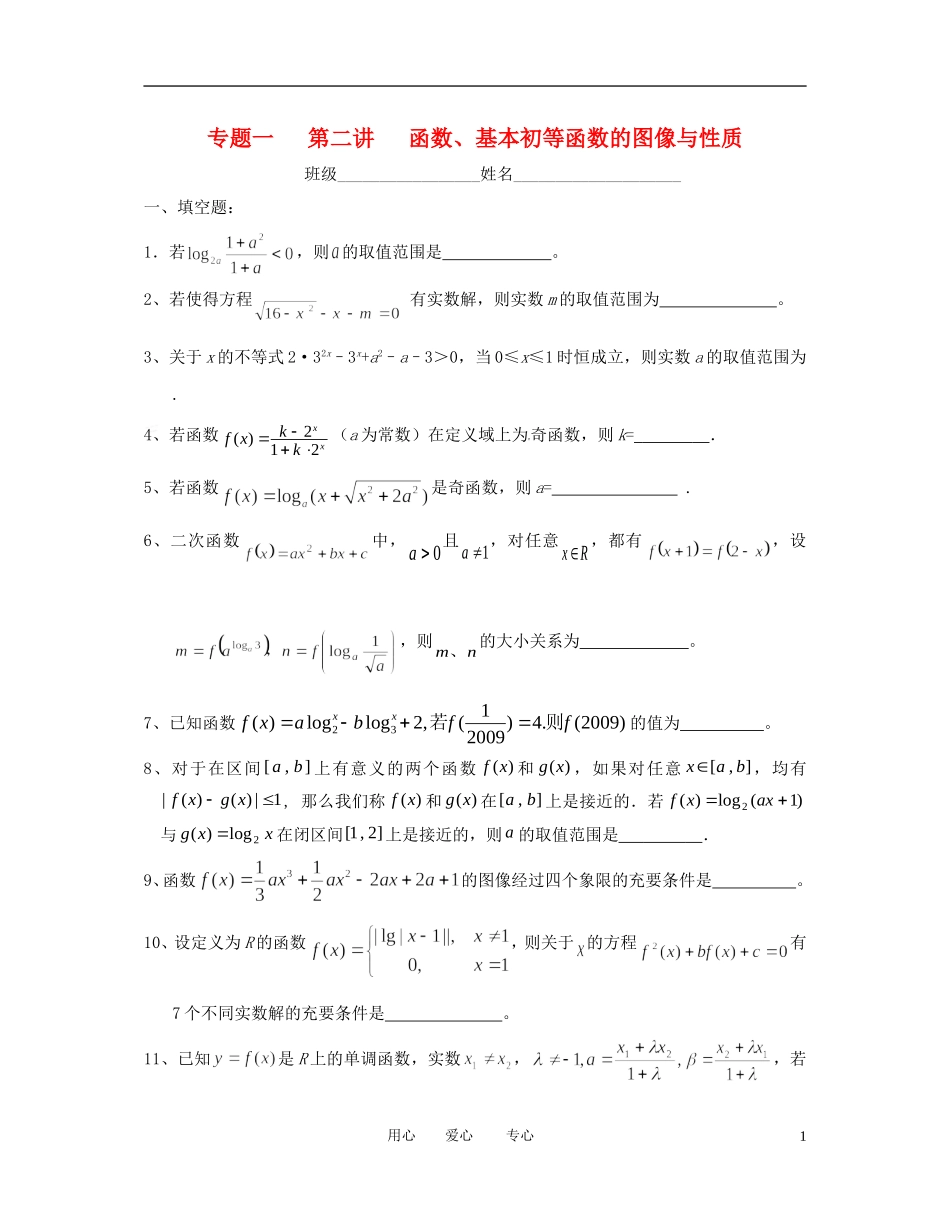 专题一 第二讲 函数、基本初等函数的图像与性质
班级_________________姓名____________________
一、填空题:
1．若 log_{2a} (1+a²)/(1+a) <0，则a的取值范围是_____________。
2、若使得方程 √(16－x²)－x－m=0 有实数解，则实数 m的取值范围为______________。
3、关于 x 的不等式 2·3^{2x}–3^x+a²–a–3＞0，当 0≤x≤1 时恒成立，则实数 a 的取值范围为
．
4、若函数 f(x)=(k－2^x)/(1+k·2^x)（a 为常数）在定义域上为奇函数，则 k=_________．
5、若函数 f(x)=log_a(x+√(x²+2a²))是奇函数，则 a=_______________ ．
6、二次函数 f(x)=ax²+bx+c 中，a>0且a≠1，对任意x∈R，都有 f(x+1)=f(2－x)，设
m=f(a^{log_a 3})，n=f(log_a (1/√a))，则m、n的大小关系为_____________。
7、已知函数 f(x)=a log₂^x－b log₃^x+2,若f(1/2009)=4.则f(2009) 的值为__________。
8、对于在区间[a,b]上有意义的两个函数 f(x)和g(x)，如果对任意x∈[a,b]，均有
|f(x)－g(x)|≤1, 那么我们称 f(x)和g(x)在[a,b]上是接近的．若 f(x)=log₂(ax+1)
与g(x)=log₂ x 在闭区间[1,2]上是接近的，则a 的取值范围是__________．
9、函数 f(x)=1/3 ax³+1/2 ax²－2ax+2a+1的图像经过四个象限的充要条件是__________。
10、设定义为 R的函数 f(x)={|lg|x－1||, x≠1; 0, x=1，则关于x的方程 f²(x)+bf(x)+c=0有
7 个不同实数解的充要条件是______________。
11、已知y=f(x)是 R上的单调函数，实数x₁≠x₂，λ≠－1,a=(x₁+λx₂)/(1+λ),β=(x₂+λx₁)/(1+λ)，若
用心 爱心 专心 1